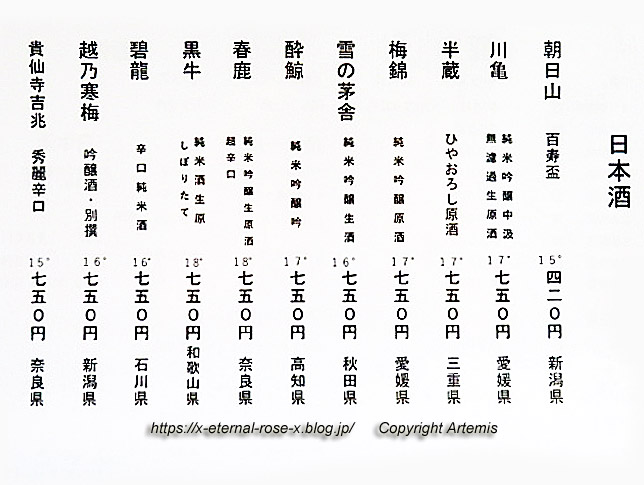 日本酒
朝日山 百寿盃 15° 四二〇円 新潟県
川亀 純米吟醸中汲 無濾過生原酒 17° 七五〇円 愛媛県
半蔵 ひやおろし原酒 17° 七五〇円 三重県
梅錦 純米吟醸原酒 17° 七五〇円 愛媛県
雪の茅舎 純米吟醸生酒 16° 七五〇円 秋田県
酔鯨 純米吟醸吟 17° 七五〇円 高知県
春鹿 純米吟醸生原酒 超辛口 18° 七五〇円 奈良県
黒牛 純米酒生原 しぼりたて 18° 七五〇円 和歌山県
碧龍 辛口純米酒 16° 七五〇円 石川県
越乃寒梅 吟醸酒・別撰 16° 七五〇円 新潟県
貴仙寺吉兆 秀麗辛口 15° 七五〇円 奈良県
https://x-eternal-rose-x.blog.jp/ Copyright Artemis